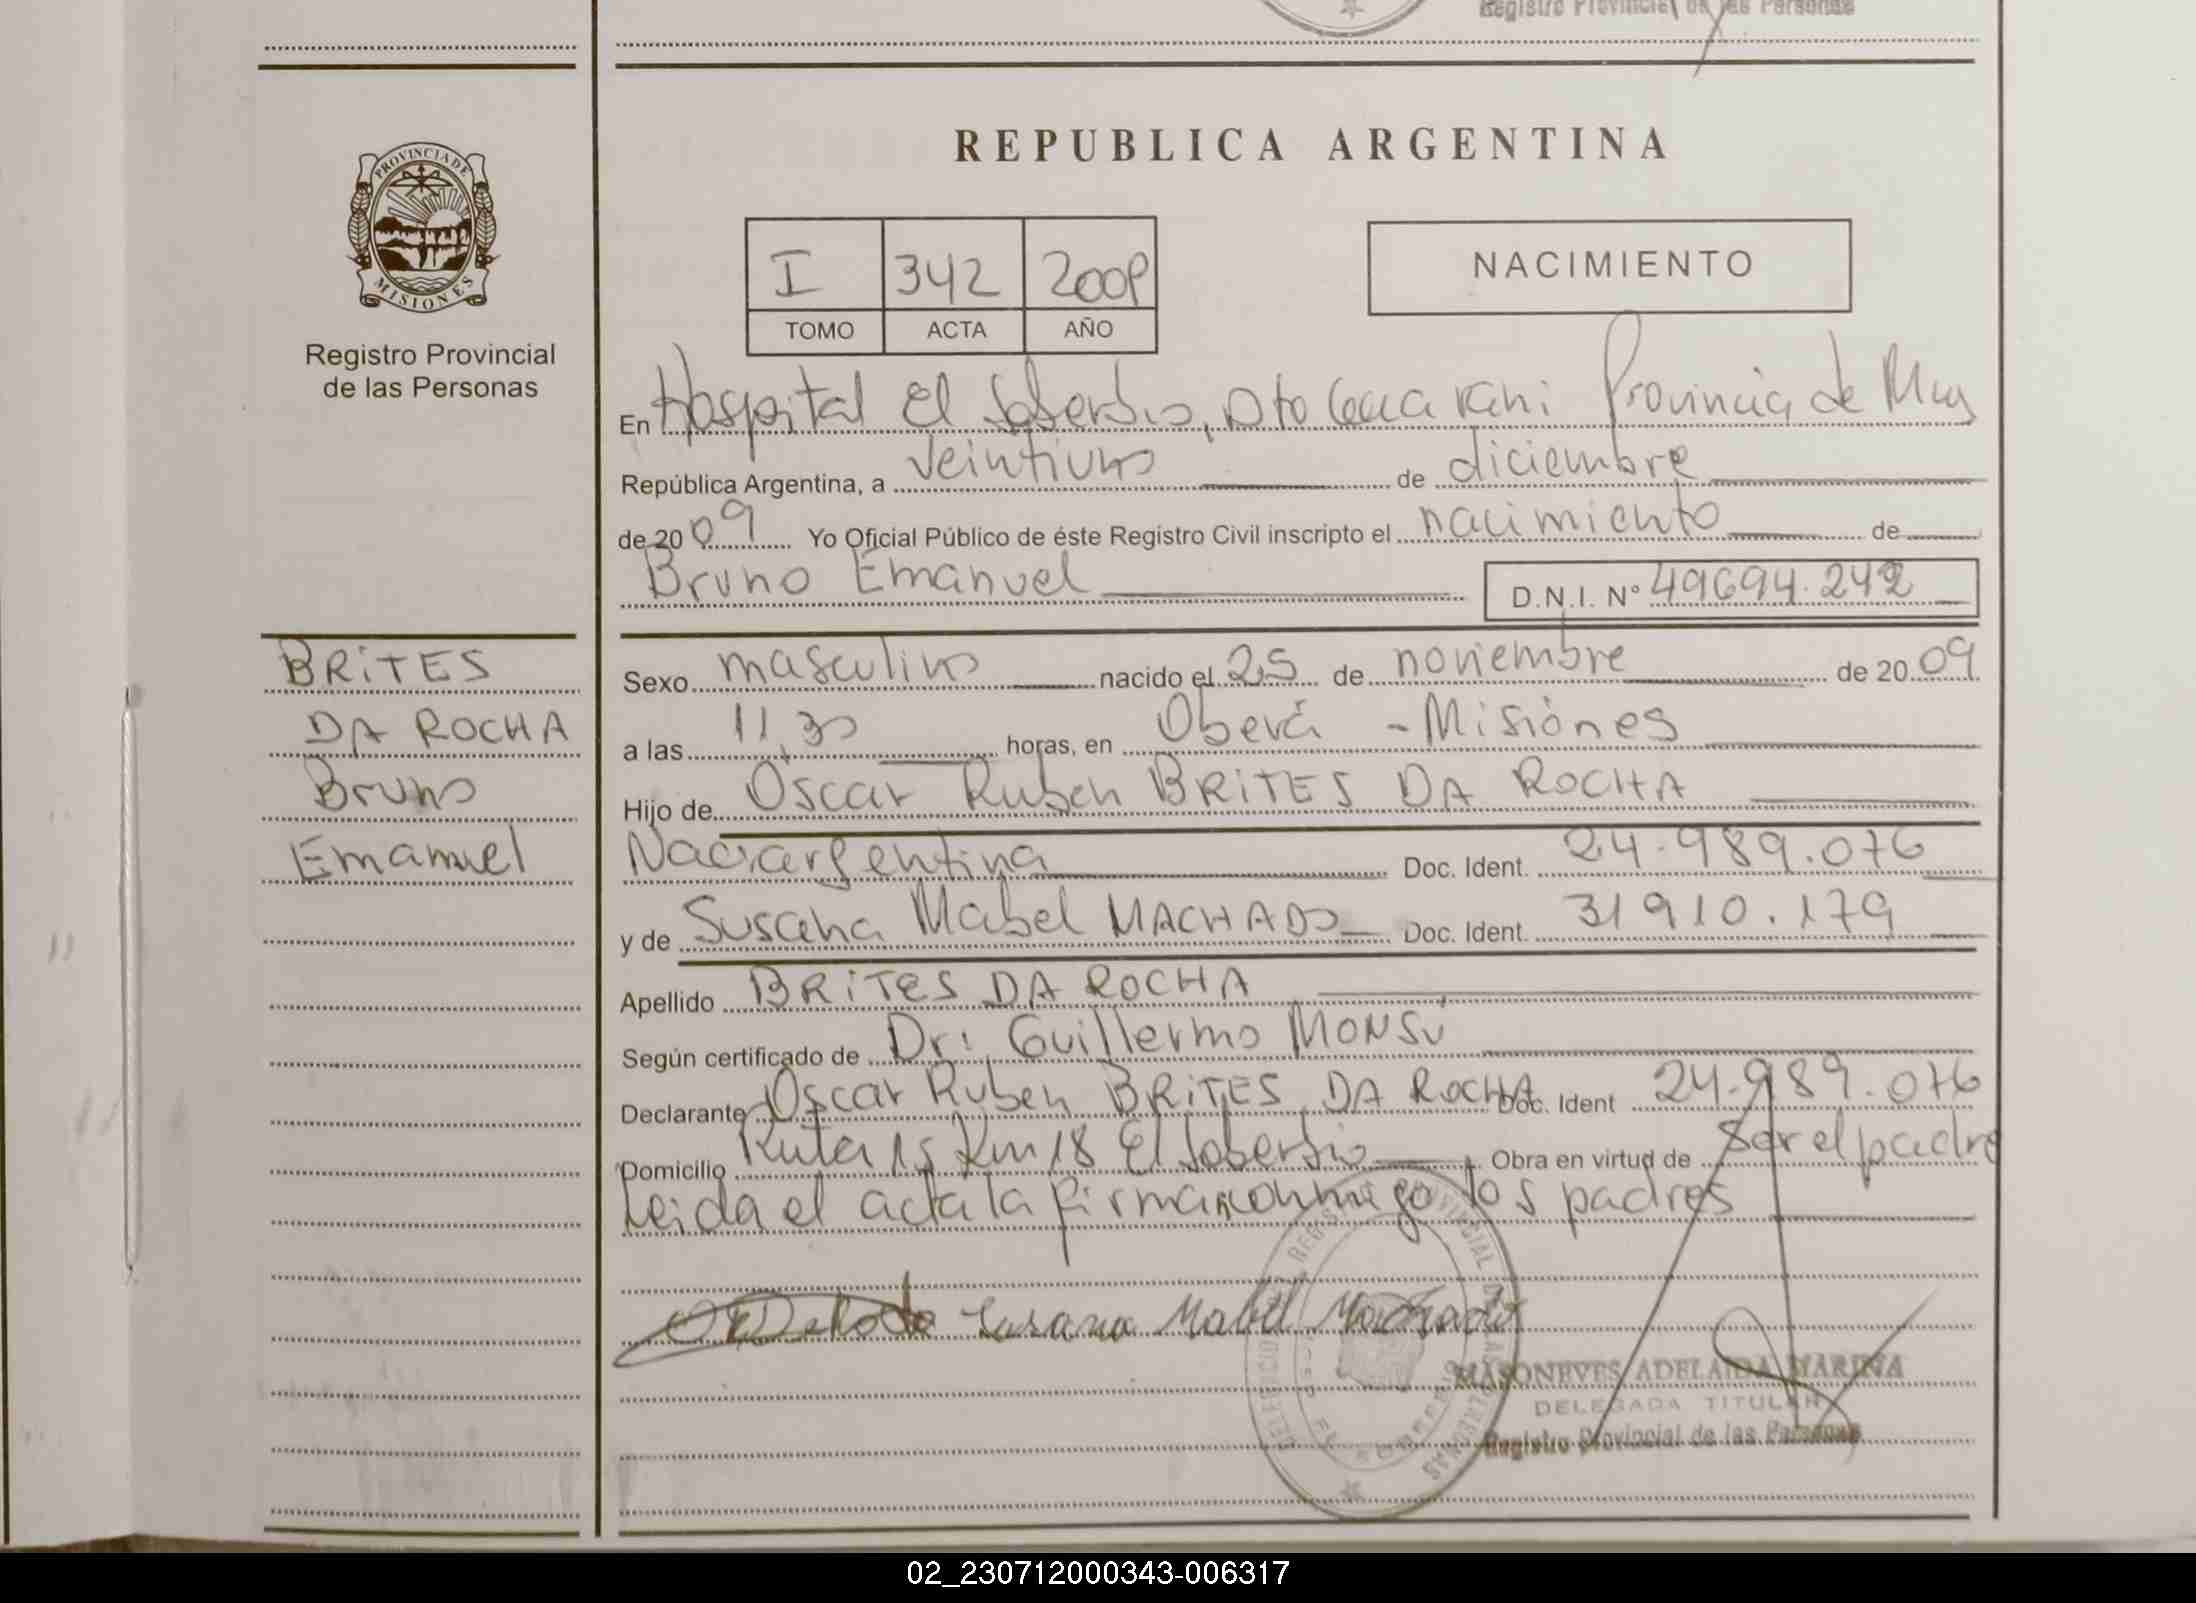 Registro Provincial de las Personas
REPUBLICA ARGENTINA
PROVINCIA DE
MISIONES
Registro Provincial
de las Personas
I 342 2009
TOMO ACTA AÑO
NACIMIENTO
En Hospital El Soberbio, Dto Guarani Provincia de Mnes
República Argentina, a veintiuno de diciembre
de 2009 Yo Oficial Público de éste Registro Civil inscripto el nacimiento de
Bruno Emanuel D.N.I. Nº 49694.242
BRITES
DA ROCHA
Bruno
Emanuel
Sexo masculino nacido el 25 de noviembre de 2009
a las 11,30 horas, en Oberá - Misiones
Hijo de Oscar Ruben BRITES DA ROCHA
Nac. argentina Doc. Ident. 24.989.076
y de Susana Mabel MACHADO Doc. Ident. 31910.179
Apellido BRITES DA ROCHA
Según certificado de Dr: Guillermo MONSÚ
Declarante Oscar Ruben BRITES DA ROCHA Doc. Ident 24.989.076
Domicilio Ruta 15 Km 18 El Soberbio Obra en virtud de ser el padre
Leida el acta la firman conmigo los padres
Susana Mabel Machado
MASONEVES ADELAIDA MARINA
DELEGADA TITULAR
Registro Provincial de las Personas
02_230712000343-006317